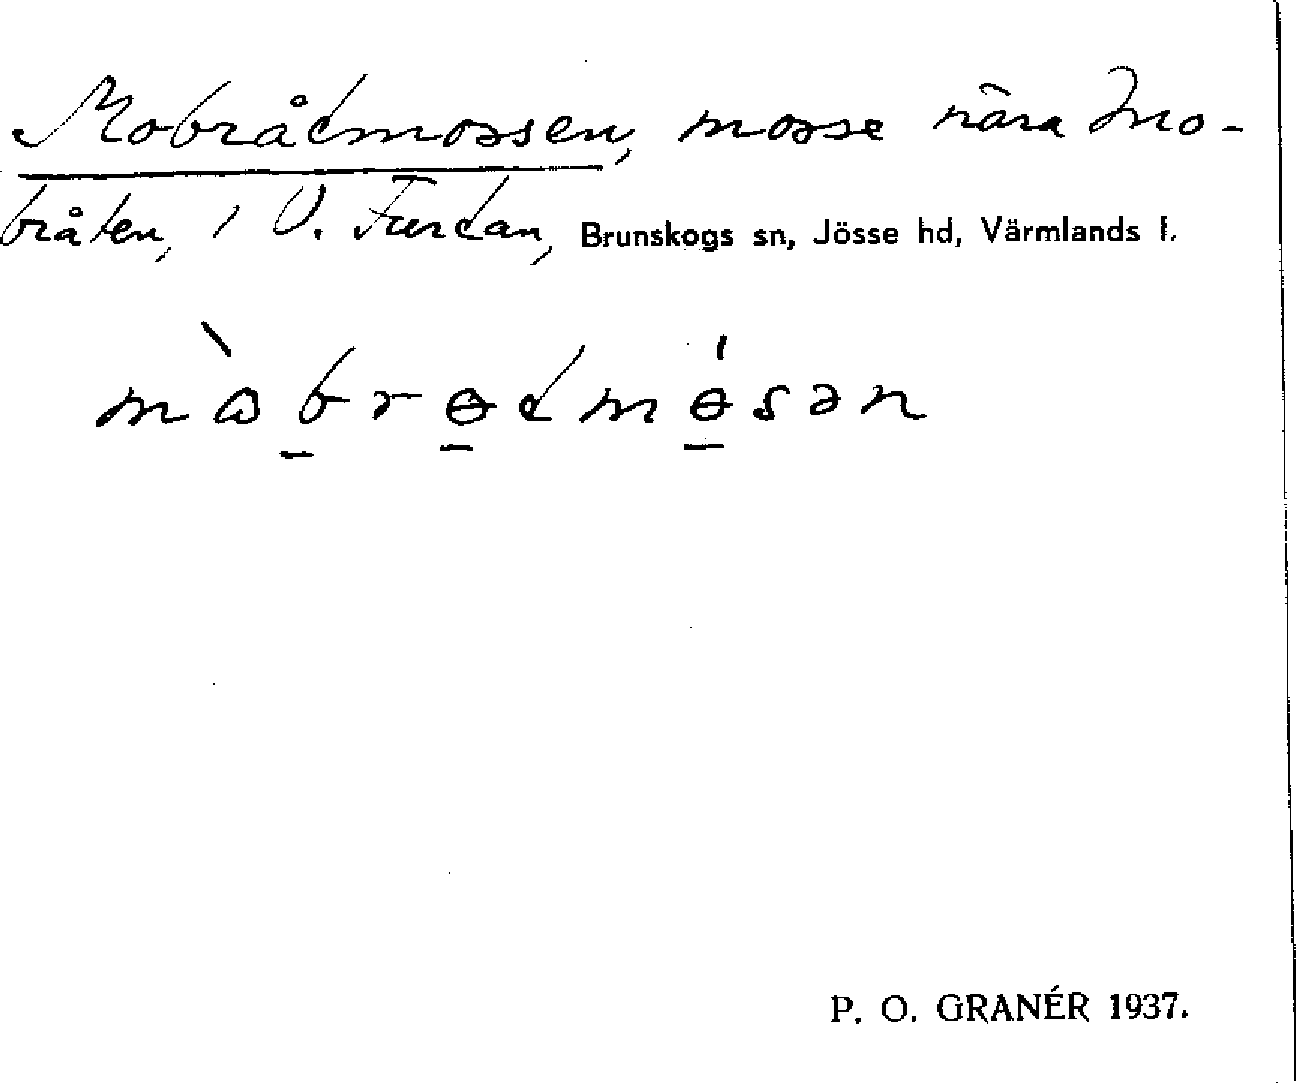 Mobråtmossen, mosse nära Mo-
bråten, i V. Furtan, Brunskogs sn, Jösse hd, Värmlands l.
mɷ̀brɵtmɵ́sən
P. O. GRANÉR 1937.